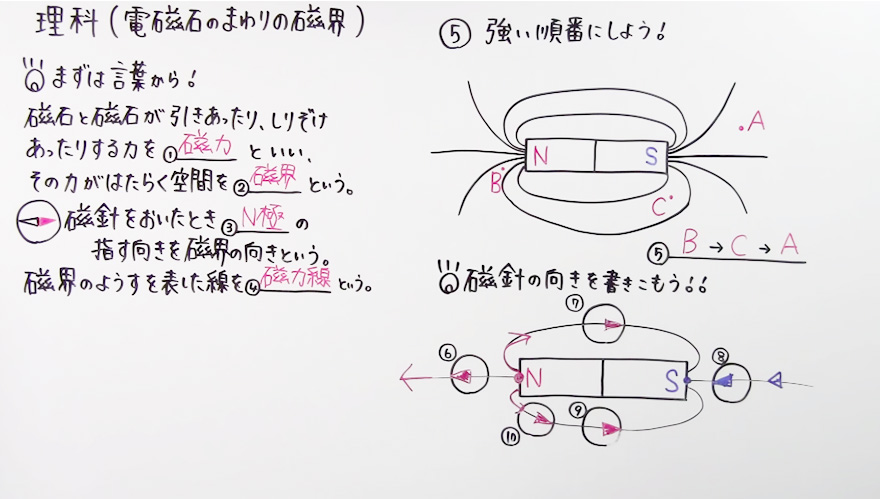 理科(電磁石のまわりの磁界)
まずは言葉から!
磁石と磁石が引きあったり、しりぞけ
あったりする力を①磁力といい、
その力がはたらく空間を②磁界という。
磁針をおいたとき③N極の
指す向きを磁界の向きという。
磁界のようすを表した線を④磁力線という。
⑤ 強い順番にしよう!
A
N S
B
C
⑤ B→C→A
磁針の向きを書きこもう!!
⑦
⑥
⑧
N S
⑨
⑩